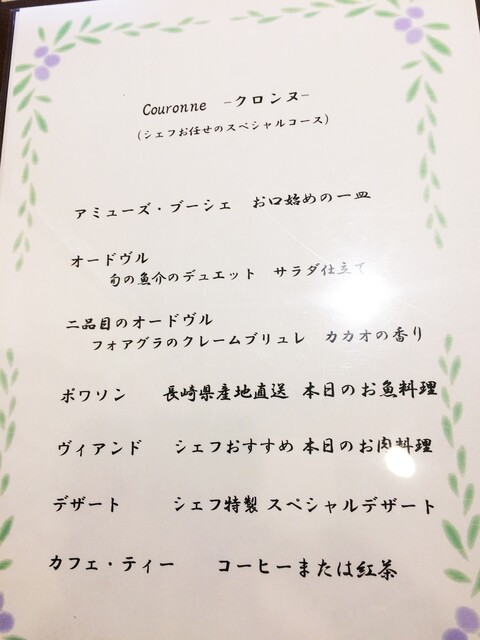 Couronne －クロンヌ－
(シェフお任せのスペシャルコース)
アミューズ・ブーシェ お口始めの一皿
オードヴル
旬の魚介のデュエット サラダ仕立て
二品目のオードヴル
フォアグラのクレームブリュレ カカオの香り
ポワソン 長崎県産地直送 本日のお魚料理
ヴィアンド シェフおすすめ 本日のお肉料理
デザート シェフ特製 スペシャルデザート
カフェ・ティー コーヒーまたは紅茶